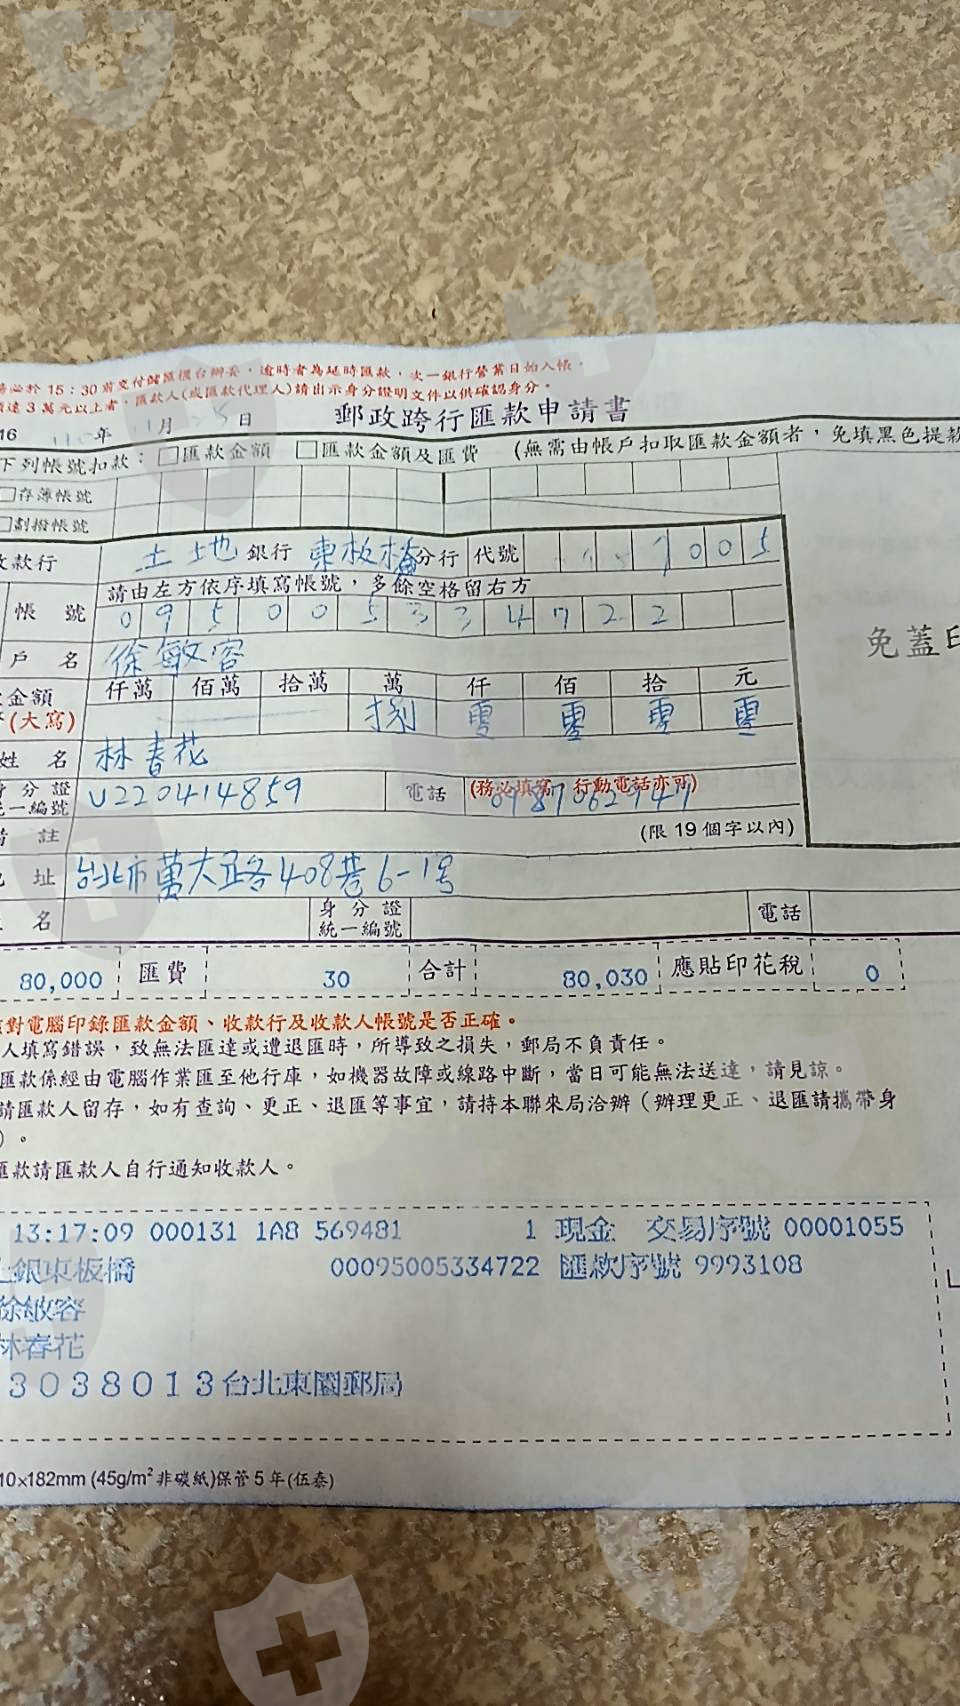 務必於 15:30 前交付儲匯櫃台辦妥，逾時者為延時匯款，次一銀行營業日始入帳。
達 3 萬元以上者，匯款人(或匯款代理人)請出示身分證明文件以供確認身分。
郵政跨行匯款申請書
年 11 月 日
下列帳號扣款：□匯款金額 □匯款金額及匯費 (無需由帳戶扣取匯款金額者，免填黑色提款
□存簿帳號
□劃撥帳號
收款行 土地 銀行 東板橋 分行 代號 7005
請由左方依序填寫帳號，多餘空格留右方
帳 號 095005334722
戶 名 徐敏容
免蓋印
金額 仟萬 佰萬 拾萬 萬 仟 佰 拾 元
(大寫) 捌 零 零 零 零
姓 名 林春花
身分證 統一編號 U220414859 電話 (務必填寫，行動電話亦可)
註 (限 19 個字以內)
址 台北市萬大路408巷6-1號
名 身分證 統一編號 電話
80,000 匯費 30 合計 80,030 應貼印花稅 0
對電腦印錄匯款金額、收款行及收款人帳號是否正確。
人填寫錯誤，致無法匯達或遭退匯時，所導致之損失，郵局不負責任。
匯款係經由電腦作業匯至他行庫，如機器故障或線路中斷，當日可能無法送達，請見諒。
請匯款人留存，如有查詢、更正、退匯等事宜，請持本聯來局洽辦（辦理更正、退匯請攜帶身
）。
匯款請匯款人自行通知收款人。
13:17:09 000131 1A8 569481 1 現金 交易序號 00001055
土銀東板橋 00095005334722 匯款序號 9993108
徐敏容
林春花
3038013台北東園郵局
10×182mm (45g/m²非碳紙)保管 5 年(伍泰)